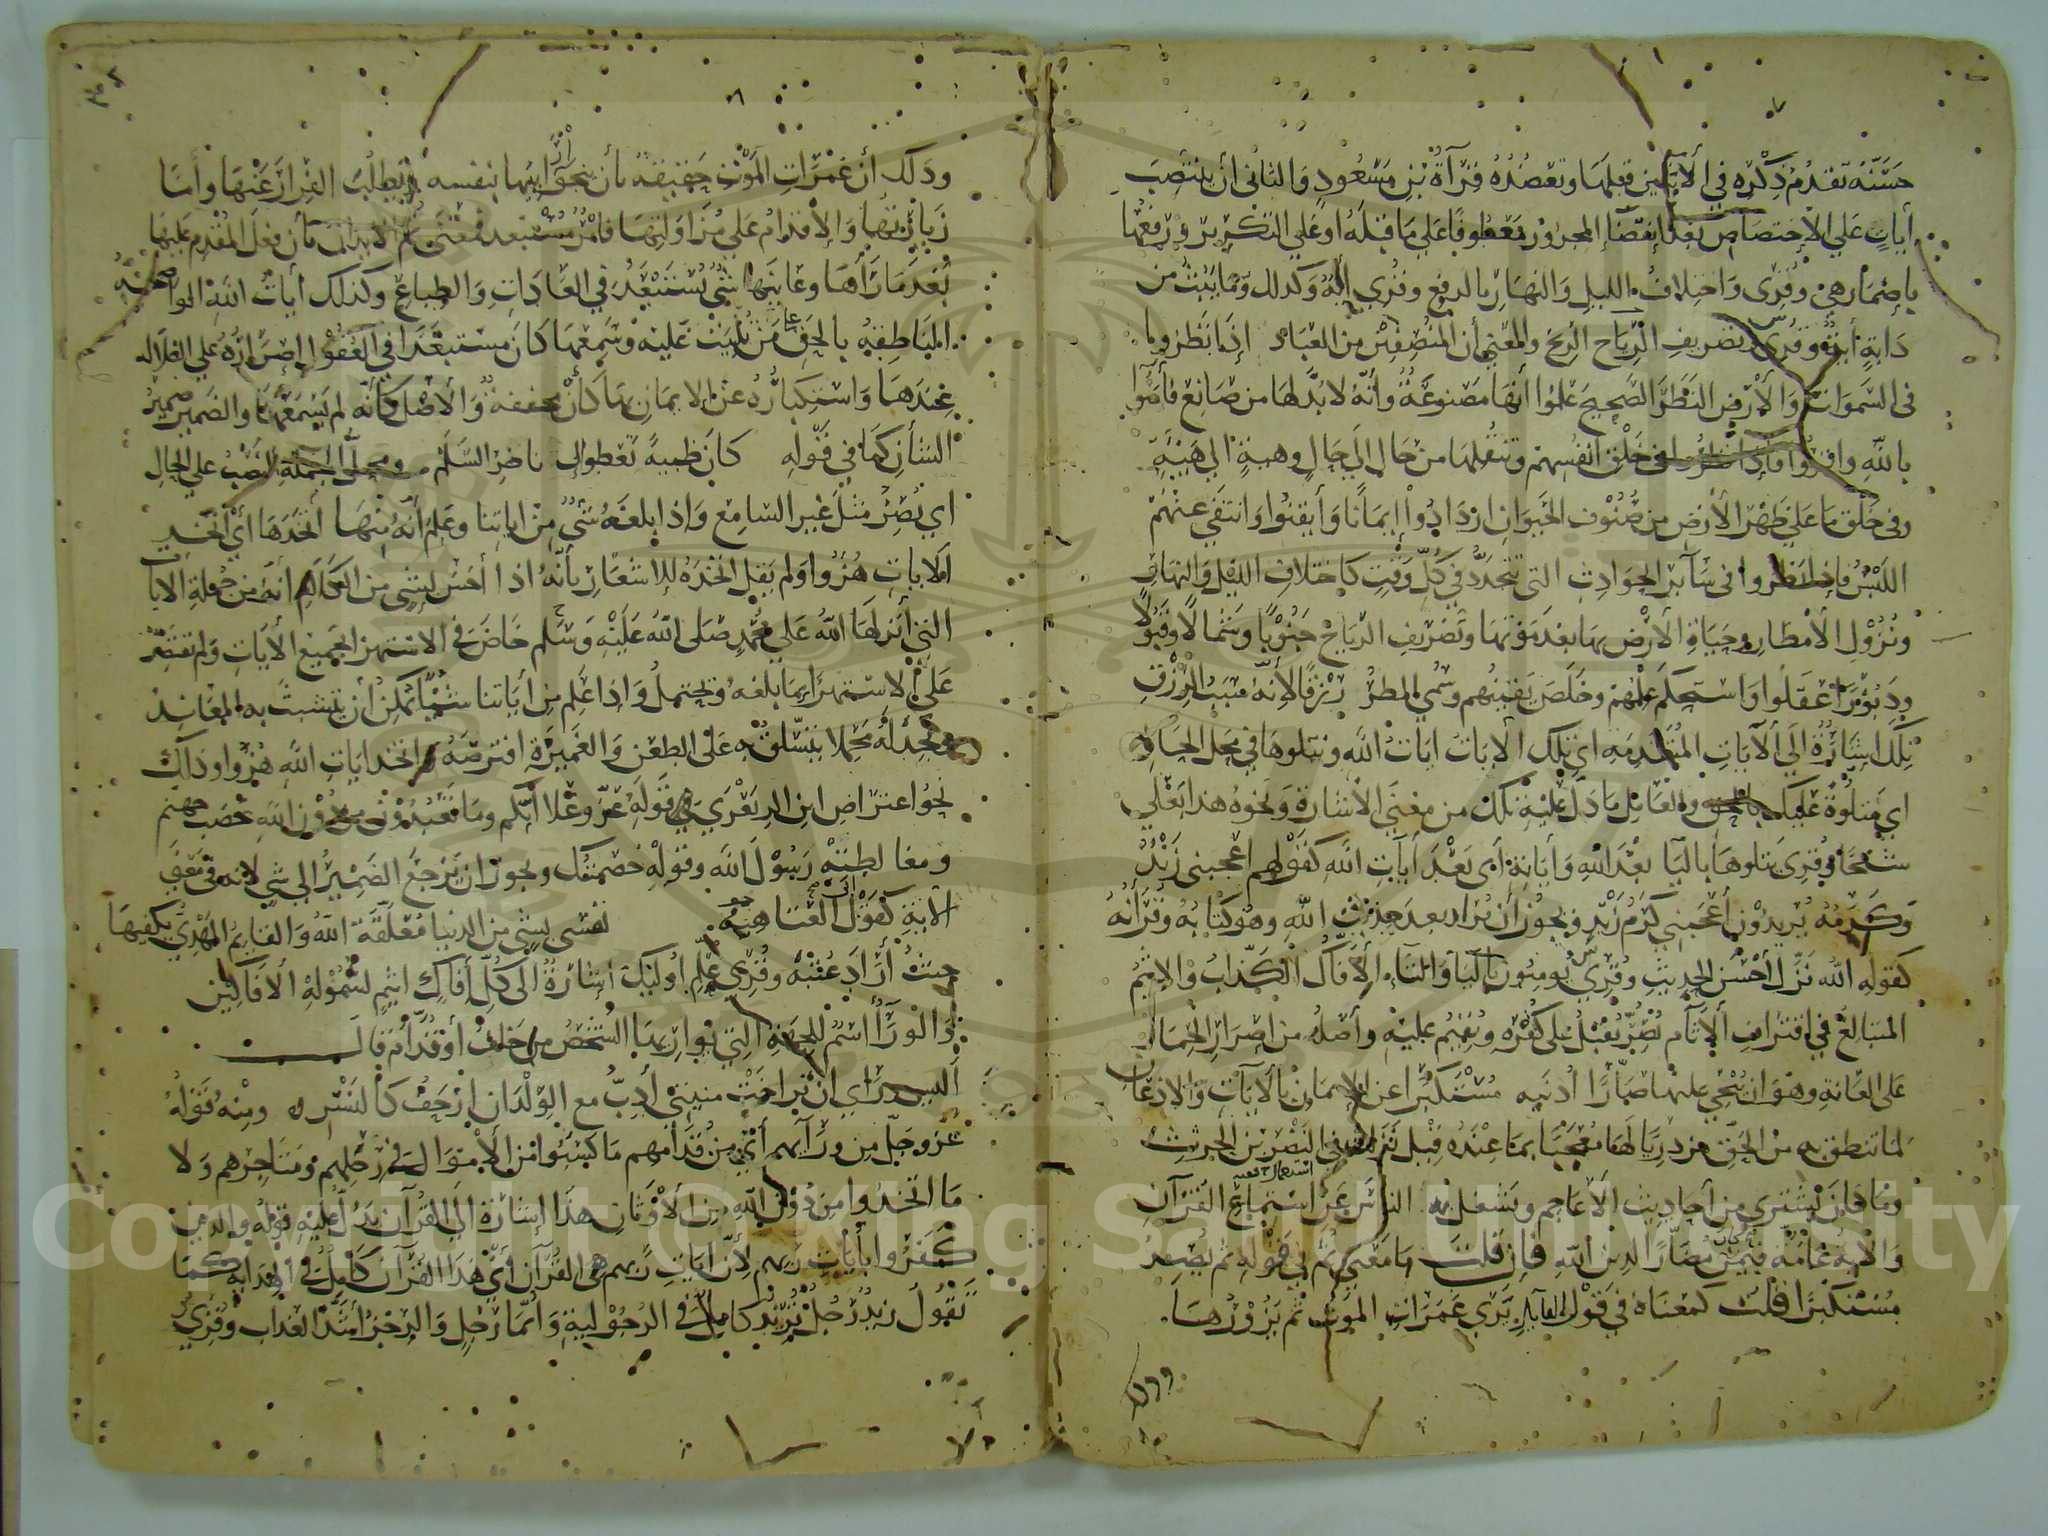 حسنه تقدم ذكره في الآيتين قبلها وتعضده قرآة بن مسعود والثاني أن ينتصب
أيات علي الاختصاص بعد انقضآ المجرور معطوفا علي ما قبله أو علي التكرير ورفعها
باضمار هي وقرى واختلاف الليل والنهار بالرفع وقري آية وكذلك وما يبث من
دابة أية وقري وتصريف الرياح الريح والمعني أن المنصفين من العباد اذا نظروا
في السموات والارض النظر الصحيح علموا انها مصنوعة وأنه لا بد لها من صانع فآمنوا
بالله واقروا فإذا نظروا في خلق انفسهم وتنقلها من حال الي حال وهيئة الي هيئة
وفي خلق ما علي ظهر الأرض من صنوف الحيوان ازدادوا إيمانا وأيقنوا وانتفي عنهم
اللبس فاذا نظروا في سآير الحوادث التي تتجدد في كل وقت كاختلاف الليل والنهار
ونزول الأمطار وحياة الأرض بها بعد موتها وتصريف الرياح جنوبا وشمالا وقبولا
ودبورا عقلوا واستحكم علمهم وخلص يقينهم وسمي المطر رزقا لأنه سبب الرزق
تلك اشارة الي الآيات المتقدمه اي تلك الايات ايات الله ونتلوها في محل الحال
اي متلوة عليك بالحق والعامل ما دل عليه تلك من معني الاشارة ونحوه هذا بعلي
شيخا وقرى يتلوها باليا بعد الله وأياته أي بعد أيات الله كقولهم اعجبني زيد
وكرمه يريدون أعجبني كرم زيد ويجوز أن يراد بعد حديث الله وهو كتابه وقرآنه
كقوله الله نزل أحسن الحديث وقري يومنون باليا والتاء الأفاك الكذاب والاثيم
المتبالغ في اقتراف الأثام يصر يقبل علي كفره ويقيم عليه وأصله من اصرار الحمار
علي العانة وهو ان ينحي عليها صارا أذنيه مستكبرا عن الايمان بالآيات والاذعان
لما تنطق به من الحق مزدريا لها معجبا بما عنده قيل نزلت في النضر بن الحرث
وما كان يشتري من أحاديث الأعاجم ويشغل به الناس عن استماع القرآن
والآية عامة فيمن كان مضارا لدين الله فان قلت ما معني ثم في قوله ثم يصر
مستكبرا قلت كمعناه في قول القايل يري غمرات الموت ثم يزورها
وذلك أن غمرات الموت حقيقة بأن ينجو رائيها بنفسه ويطلب الفرار عنها وأما
زيارتها والاقدام علي مزاولتها فأمر مستبعد فمعني ثم الايذان بأن فعل المقدم عليها
بعد ما رآها وعاينها شي يستبعد في العادات والطباع وكذلك أيات الله الواضحة
الناطقة بالحق من تليت عليه وسمعها كان مستبعدا في العقول إصراره علي الضلاله
عندها واستكباره عن الايمان بها كأن مخففة والأصل كأنه لم يسمعها والضمير ضمير
الشأن كما في قوله كان ظبية تعطو الي ناضر السلم ومحل الجملة النصب علي الحال
اي يصر مثل غير السامع وإذا بلغه شي من اياتنا وعلم أنه منها أتخذها أي أتخذ
الايات هزوا ولم يقل اتخذه للاشعار بأنه اذا أحس بشي من الكلام انه من جملة الايات
التي أنزلها الله علي محمد صلى الله عليه وسلم خاض في الاستهزا بجميع الأيات ولم يقتصر
علي الاستهزا بما بلغه ويحتمل وإذا علم من أياتنا شيئا يمكن أن يتشبث به المعاند
ويجد له محملا يتسلق به علي الطعن والغميزة افترصه واتخد ايات الله هزوا وذلك
نحو اعتراض ابن الزبعري في قوله عز وعلا انكم وما تعبدون من دون الله حصب جهنم
ومغالطته رسول الله وقوله خصمتك ويجوز ان يرجع الضمير الي شي لانه في معني
الآية كقول أبي العتاهية نفسى بشي من الدنيا معلقة الله والقايم المهدي يكفيها
حيث أراد عتبة وقري علم اوليك اشارة الى كل أفاك اثيم لشموله الافاكين
والورآ اسم للجهة التي يواريها الشخص من خلف أو قدام قال
أليس وراي ان تراخت منيتي أدب مع الولدان ازحف كالنسر ومنه قوله
عز وجل من ورآيهم أي من قدامهم ما كسبوا من الأموال في رحلهم ومتاجرهم ولا
ما اتخدوا من دون الله من الأوثان هذا إشارة الي القرآن يدل عليه قوله والدين
كفروا بأيات ربهم لأن ايات ربهم هي القرآن أي هذا القرآن كامل في الهداية كما
تقول زيد رجل تريد كامل في الرجولية وأيما رجل والرجز أشد العذاب وقري
Copyright © King Saud University